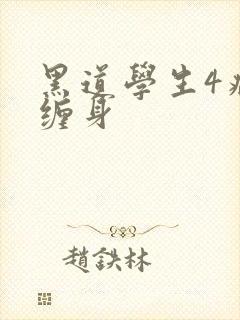 黑道學生4
缠身
趙鉄林